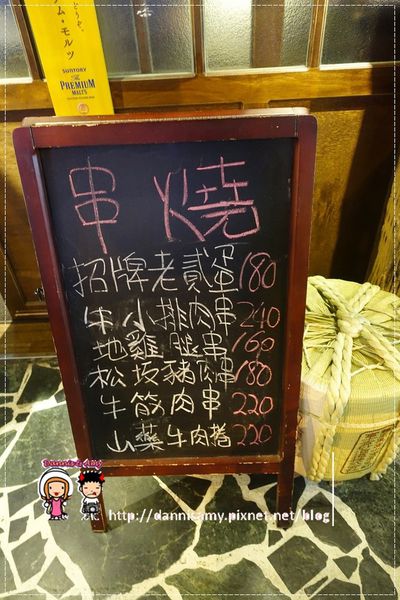 ム・モルツ
SUNTORY
The
PREMIUM
MALT'S
串燒
招牌老貳蛋180
牛小排肉串240
地雞腿串160
松坂豬肉串180
牛筋肉串220
山藥牛肉捲220
Dannis & Amy
http://dannisamy.pixnet.net/blog